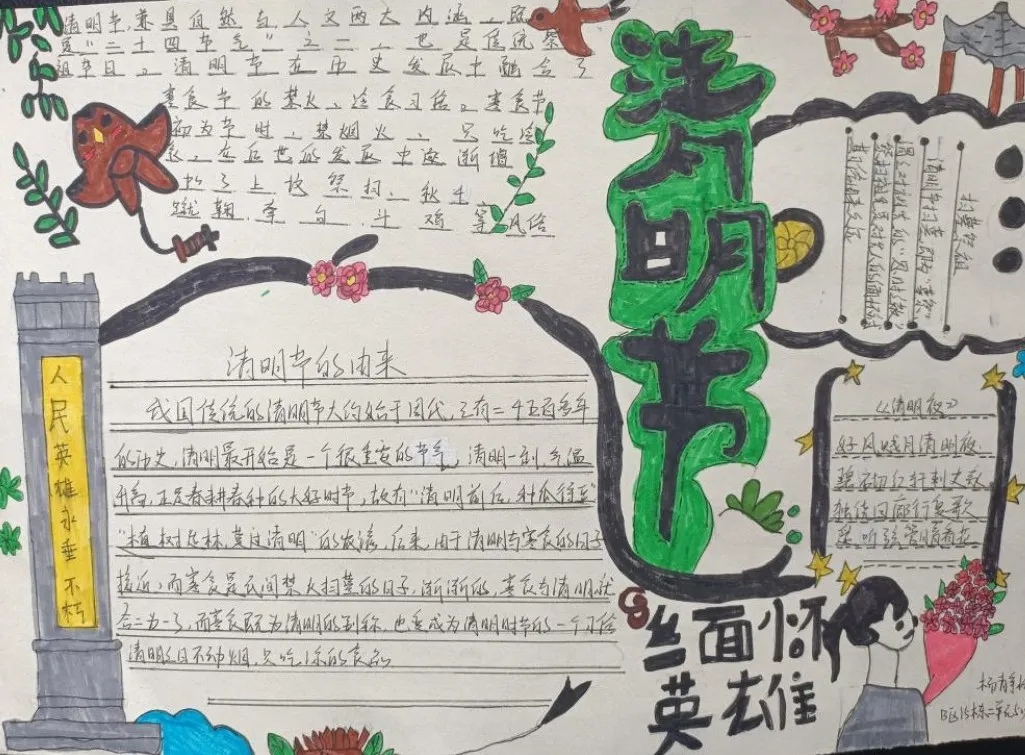 清明节,兼具自然与人文两大内涵,既
是"二十四节气"之一,也是传统祭
祖节日。清明节在历史发展中融合了
寒食节的禁火、冷食习俗。寒食节
初为节时,禁烟火、只吃冷
食。在后世的发展中逐渐增
加了上坟祭扫、秋千
蹴鞠、牵勾、斗鸡等风俗
清明节
扫墓祭祖
清明节扫墓
《清明夜》
好风胧月清明夜,
碧砌红轩刺史家
独绕回廊行复歇
听弦管暗看花
清明节的由来
我国传统的清明节大约始于周代,已有二千五百多年
的历史,清明最开始是一个很重要的节气,清明一到,气温
升高,正是春耕春种的大好时节,故有"清明前后,种瓜
"植树造林,莫过清明"的农谚,后来,由于清明与寒食的日子
接近,而寒食是民间禁火扫墓的日子,渐渐的,寒食与清明就
合二为一了,而寒食既为清明的别称,也变成为清明时节的一个习俗
清明的日不动烟,只吃凉的食品
人民英雄永垂不朽
面怀
英雄